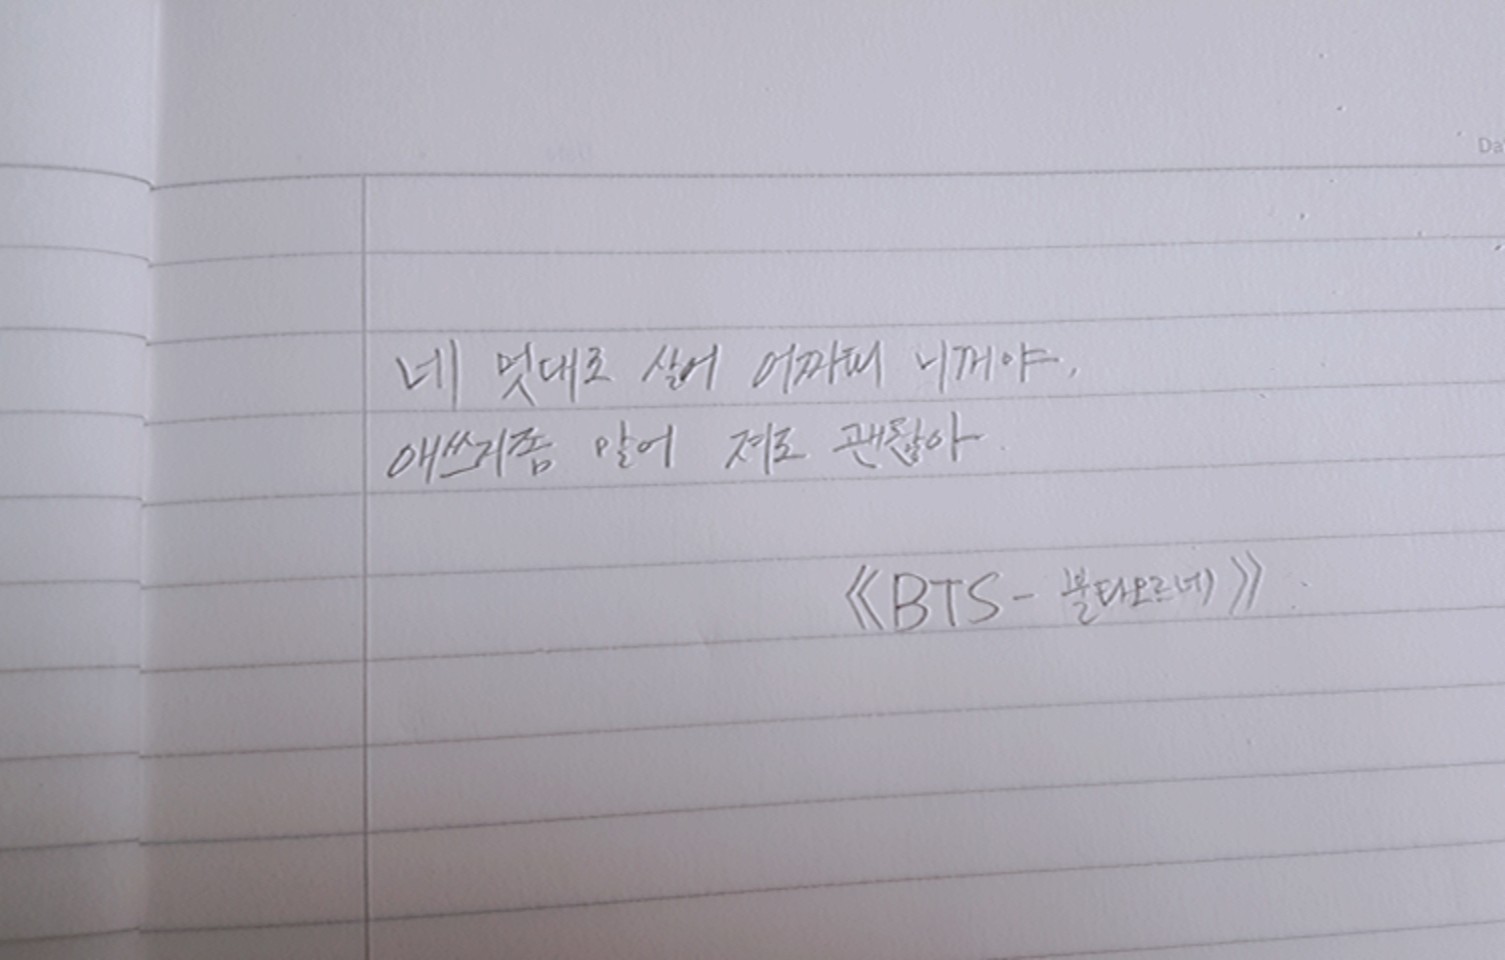 Da
네 멋대로 살어 어짜피 니꺼야.
애쓰지좀 말어 져도 괜찮아.
《BTS - 불타오르네》.